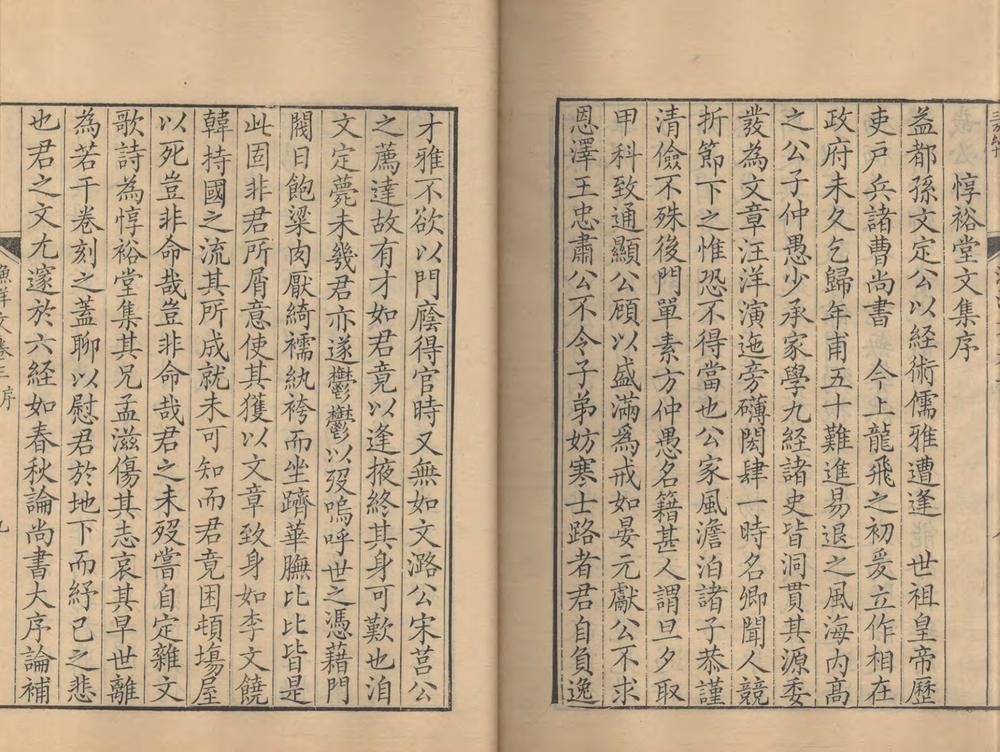 惇裕堂文集序
益都孫文定公以經術儒雅遭逢　世祖皇帝歷
吏戶兵諸曹尚書　今上龍飛之初爰立作相在
政府未久乞歸年甫五十難進易退之風海內高
之公子仲愚少承家學九經諸史皆洞貫其源委
發為文章汪洋演迤旁礴閎肆一時名卿聞人競
折節下之惟恐不得當也公家風澹泊諸子恭謹
清儉不殊後門單素方仲愚名籍甚人謂旦夕取
甲科致通顯公顧以盛滿爲戒如晏元獻公不求
恩澤王忠肅公不令子弟妨寒士路者君自負逸
才雅不欲以門廕得官時又無如文潞公宋莒公
之薦達故有才如君竟以逢掖終其身可歎也洎
文定薨未幾君亦遂鬱鬱以歿嗚呼世之憑藉門
閥日飽粱肉厭綺襦紈袴而坐躋華膴比比皆是
此固非君所屑意使其獲以文章致身如李文饒
韓持國之流其所成就未可知而君竟困頓塲屋
以死豈非命哉豈非命哉君之未歿嘗自定雜文
歌詩為惇裕堂集其兄孟滋傷其志哀其早世離
為若干卷刻之蓋聊以慰君於地下而紓己之悲
也君之文尤邃於六経如春秋論尚書大序論補
漁洋文卷三　序
九